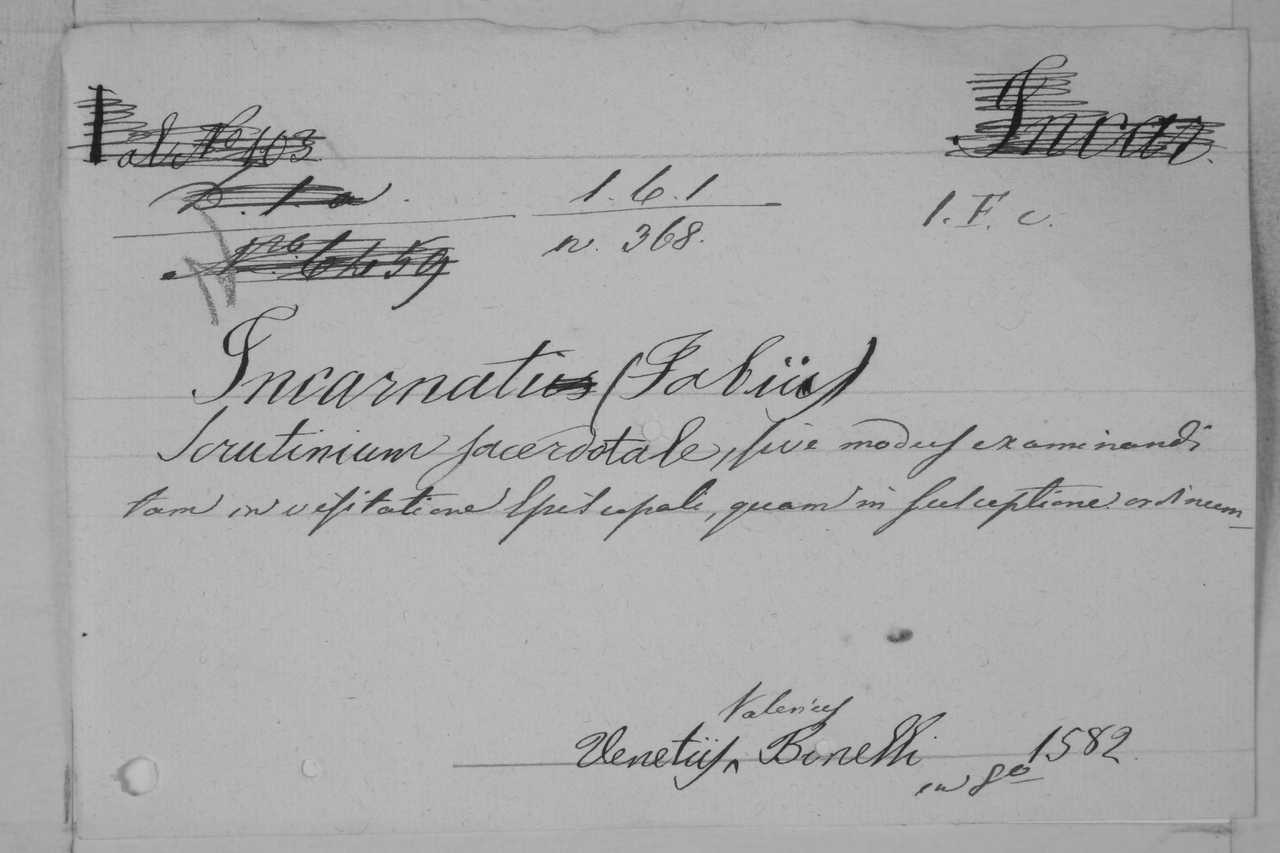 al. No 403
Incar.
D. 1. a
1. 6. 1
1. F. c.
No. 6459
n. 368.
Incarnatus (Fabii)
Scrutinium sacerdotale, sive modus examinandi
tam in visitatione Episcopali, quam in susceptione ordinum_
Valerius
Venetiis Bonelli 1582
in 8o